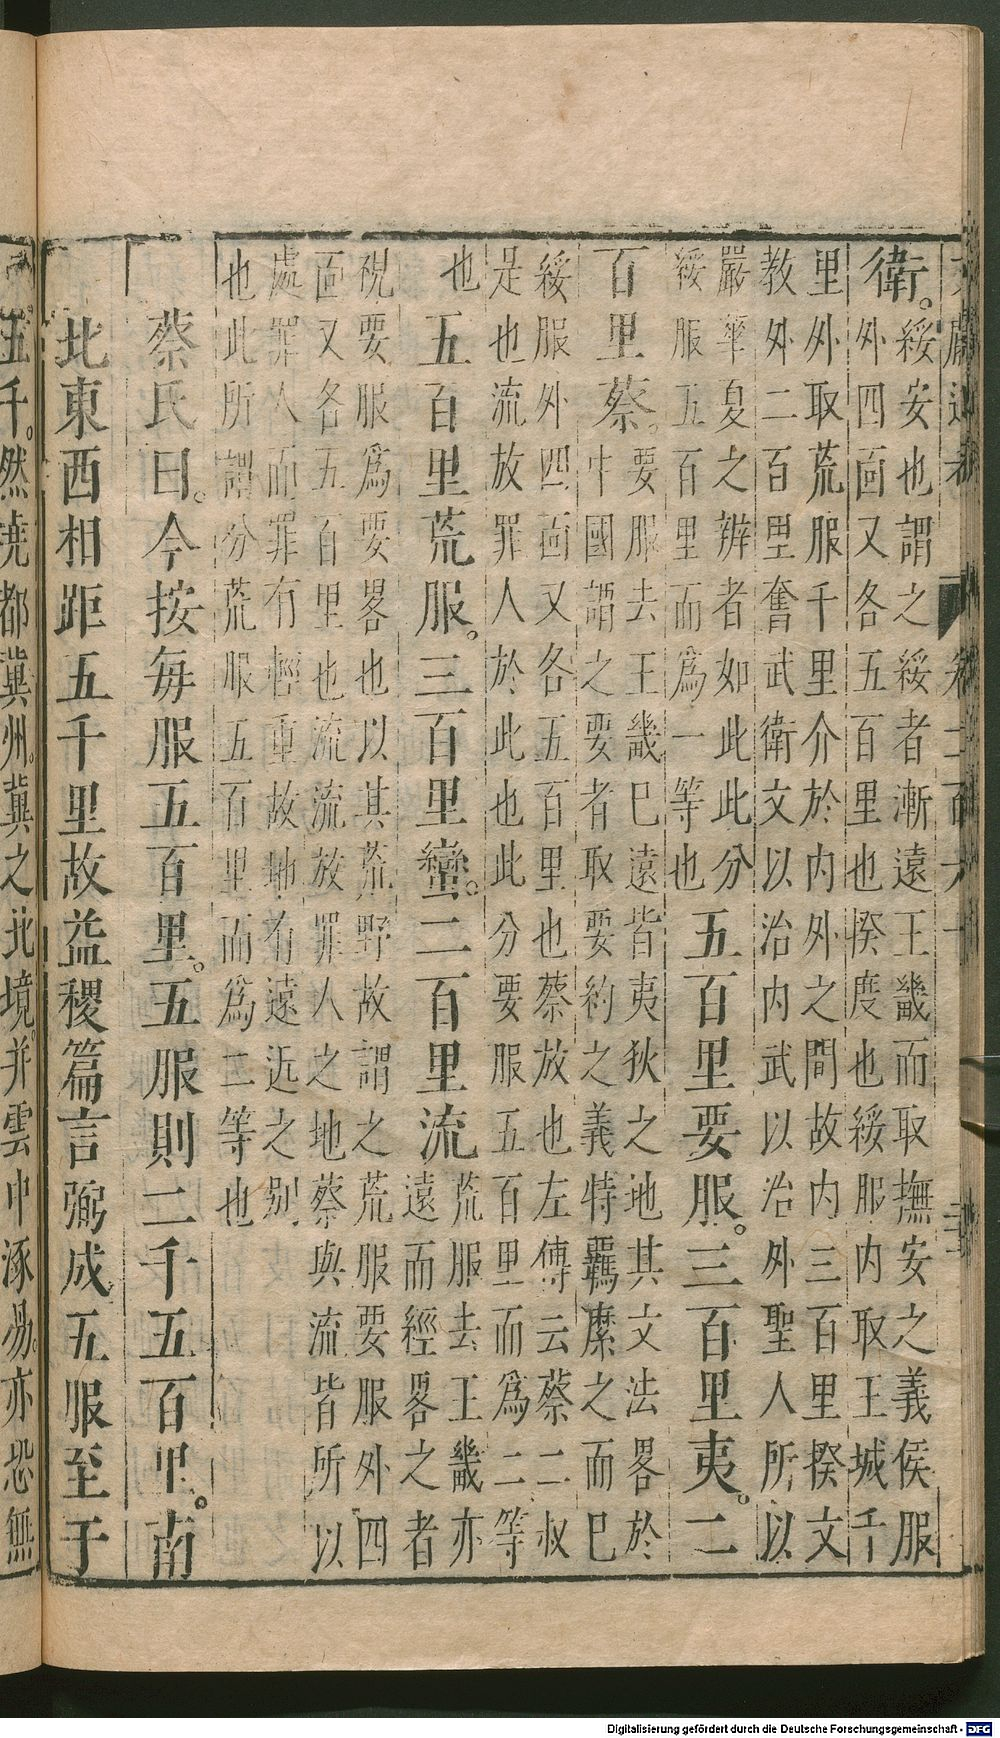 文獻通考 卷二百六十
衛。
綏安也謂之綏者漸遠王畿而取撫安之義侯服
外四面又各五百里也揆度也綏服内取王城千
里外取荒服千里介於内外之間故内三百里揆文
教外二百里奮武衛文以治内武以治外聖人所以
嚴華夏之辨者如此此分
綏服五百里而爲一等也
五百里要服。三百里夷。二
百里蔡。
要服去王畿巳遠皆夷狄之地其文法畧於
中國謂之要者取要約之義特羈縻之而巳
綏服外四面又各五百里也蔡放也左傳云蔡二叔
是也流放罪人於此也此分要服五百里而爲二等
也
五百里荒服。三百里蠻。二百里流
荒服去王畿亦
遠而經畧之者
視要服爲要畧也以其荒野故謂之荒服要服外四
面又各五百里也流流放罪人之地蔡與流皆所以
處罪人而罪有輕重故地有遠近之别
也此所謂分荒服五百里而爲二等也
蔡氏曰。今按每服五百里。五服則二千五百里。南
北東西相距五千里故益稷篇言弼成五服至于
五千。然堯都冀州。冀之北境。并雲中涿易。亦恐無
Digitalisierung gefördert durch die Deutsche Forschungsgemeinschaft - DFG